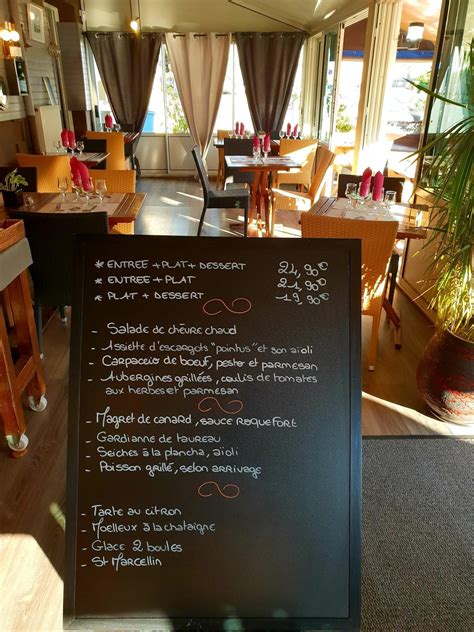 * ENTREE + PLAT + DESSERT 24,90€
* ENTREE + PLAT 21,90€
* PLAT + DESSERT 19,90€
- Salade de chèvre chaud
- Assiette d'escargots "pointus" et son aïoli
- Carpaccio de boeuf, pesto et parmesan
- Aubergines grillées, coulis de tomates
aux herbes et parmesan
- Magret de canard, sauce roquefort
- Gardianne de taureau
- Seiches à la plancha, aïoli
- Poisson grillé, selon arrivage
- Tarte au citron
- Moelleux à la chataigne
- Glace 2 boules
- St Marcellin